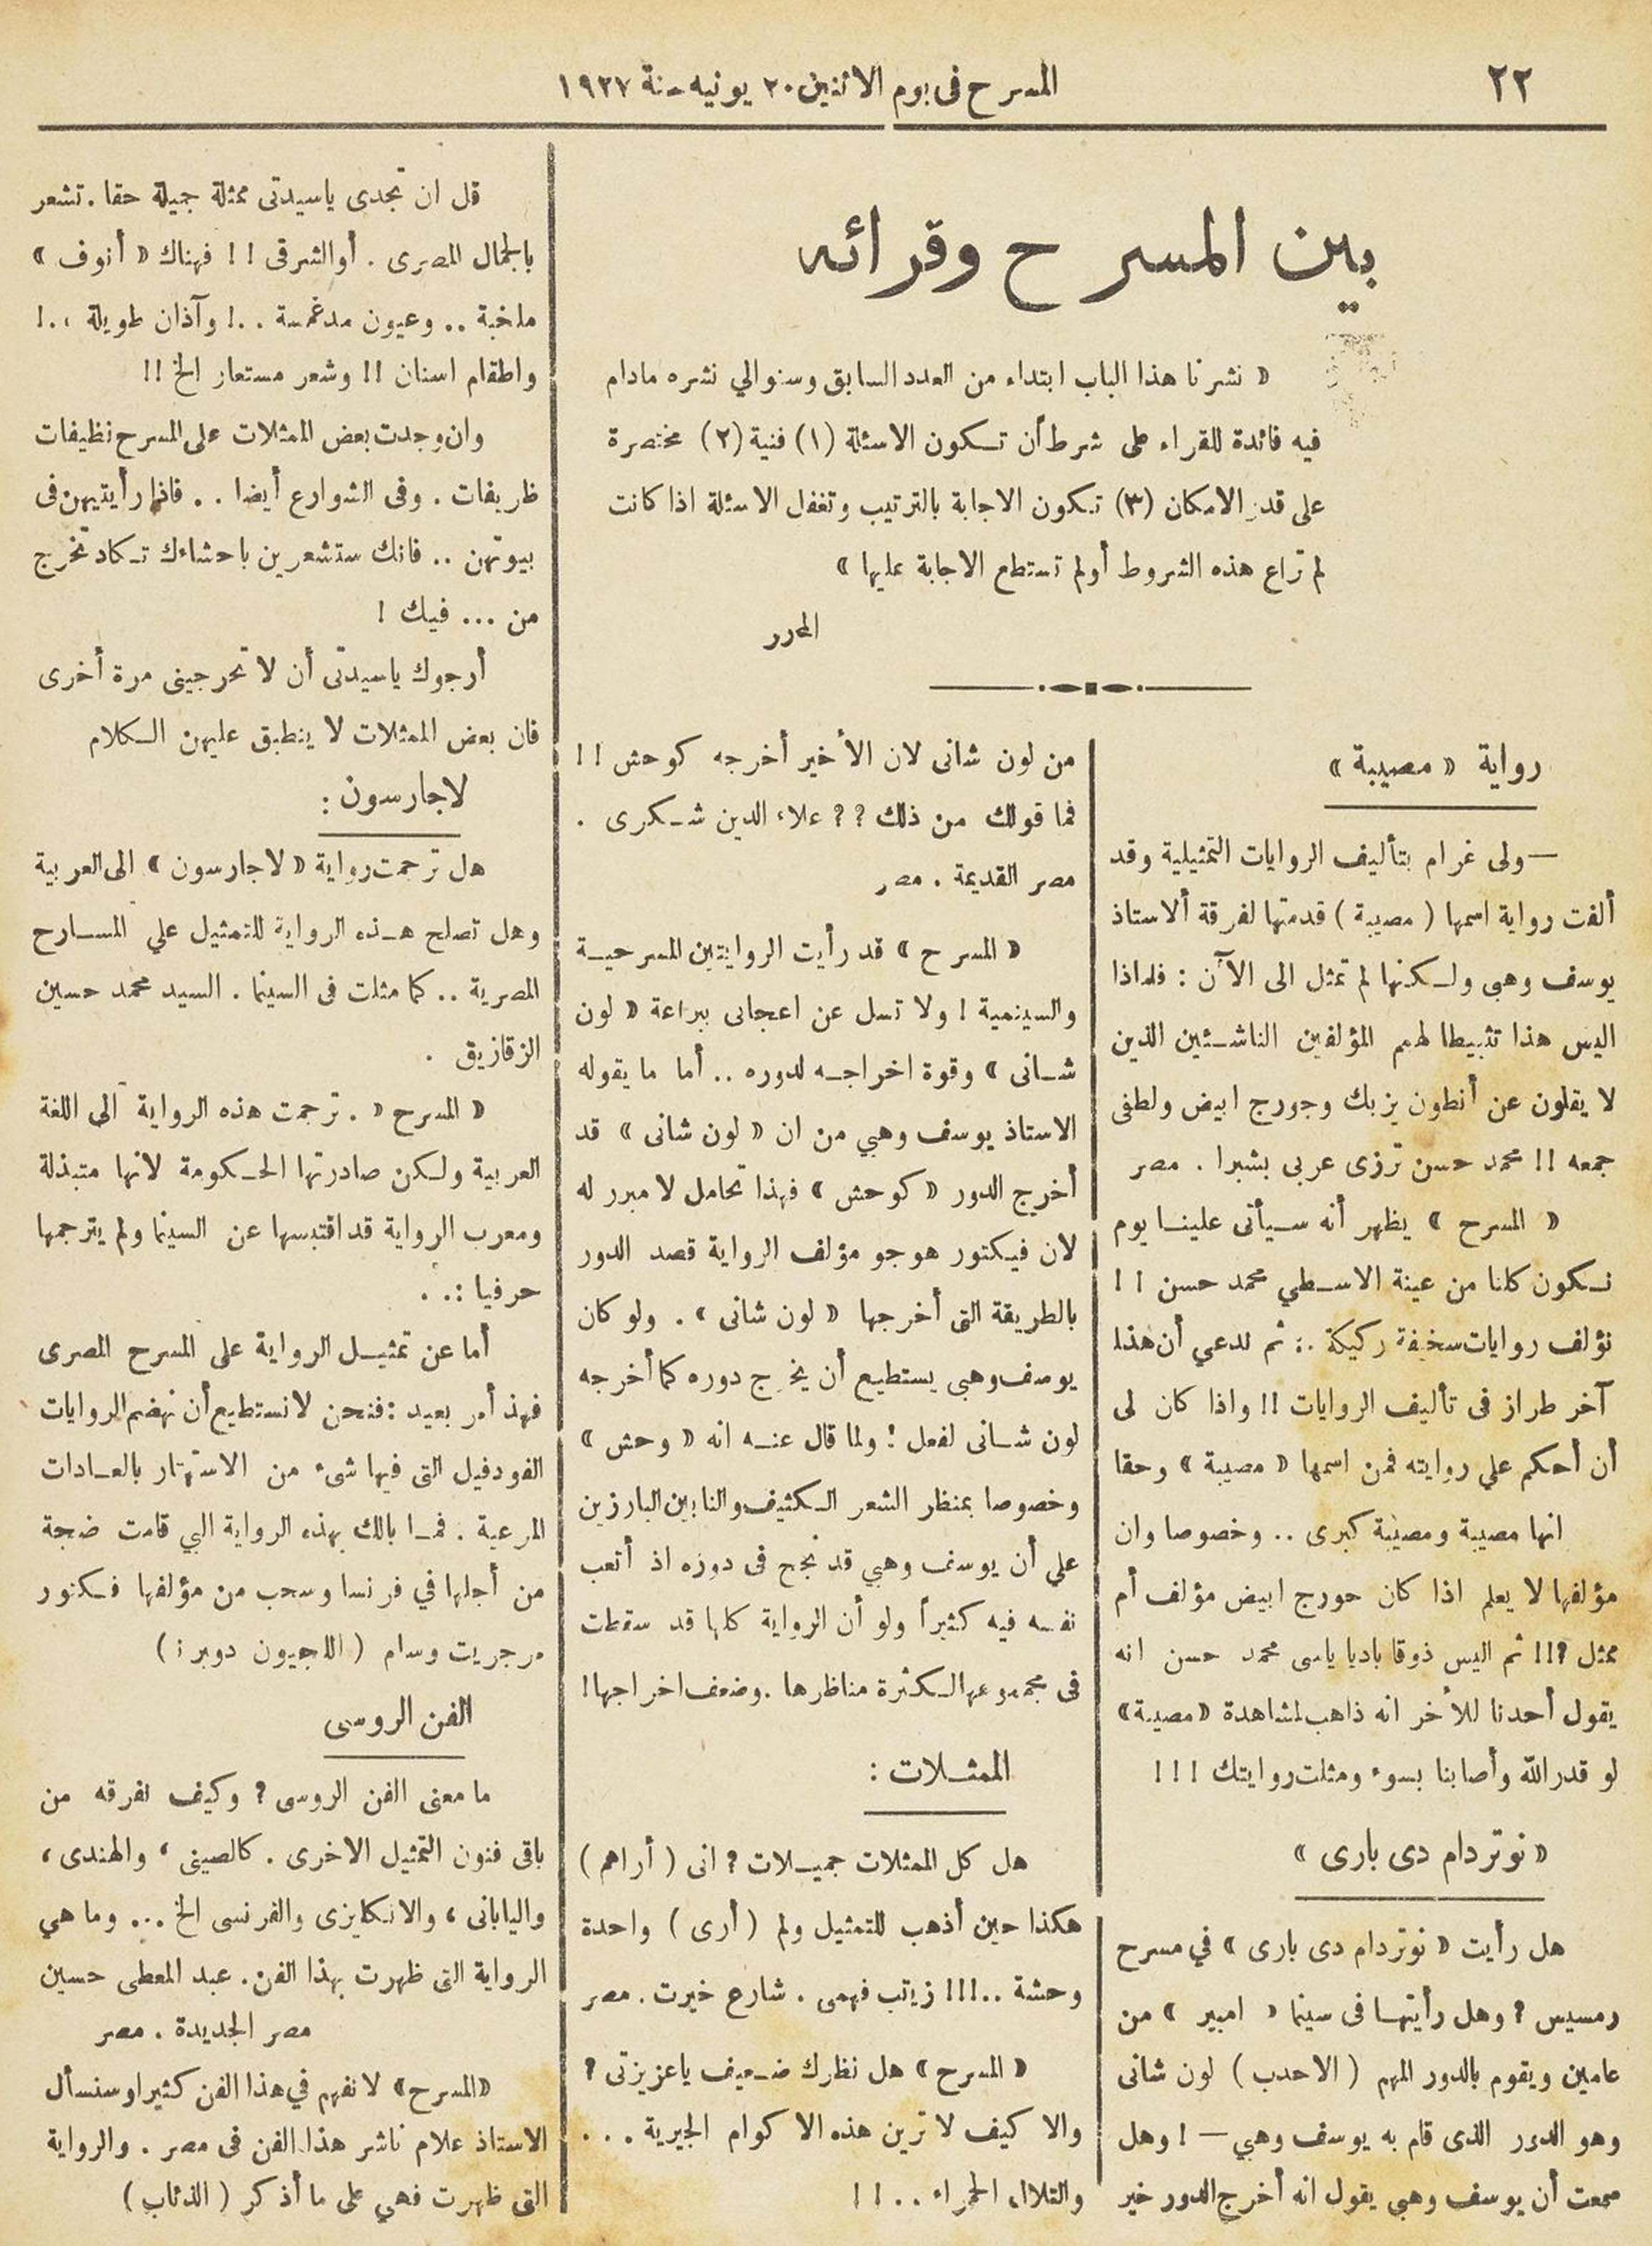 ٢٢
المسرح فى يوم الاثنين ٢٠ يونيه سنة ١٩٢٧
بين المسرح وقرائه
« نشرنا هذا الباب ابتداء من العدد السابق وسنوالي نشره مادام
فيه فائدة للقراء على شرط أن تكون الاسئلة (١) فنية (٢) مختصرة
على قدر الامكان (٣) تكون الاجابة بالترتيب وتغفل الاسئلة اذا كانت
لم تراع هذه الشروط أولم تستطع الاجابة عليها »
المحرر
رواية « مصيبة »
— ولى غرام بتأليف الروايات التمثيلية وقد
ألفت رواية اسمها ( مصيبة ) قدمتها لفرقة ألاستاذ
يوسف وهبى ولكنها لم تمثل الى الآن : فلماذا
اليس هذا تثبيطا لهمم المؤلفين الناشئين الذين
لا يقلون عن أنطون يزبك وجورج ابيض ولطفى
جمعه !! محمد حسن ترزى عربى بشبرا . مصر
« المسرح » يظهر أنه سيأتى علينا يوم
نكون كلنا من عينة الاسطي محمد حسن !!
نؤلف روايات سخيفة ركيكة .: ثم ندعي أن هذا
آخر طراز فى تأليف الروايات !! واذا كان لى
أن أحكم علي روايته فمن اسمها « مصيبة » وحقا
انها مصيبة ومصيبة كبرى .. وخصوصا وان
مؤلفها لا يعلم اذا كان جورج ابيض مؤلف أم
ممثل ?!! ثم اليس ذوقا باديا ياسى محمد حسن انه
يقول أحدنا للأخر انه ذاهب لمشاهدة «مصيبة»
لو قدر الله وأصابنا بسوء ومثلت روايتك !!!
« نوتردام دى بارى »
هل رأيت « نوتردام دى بارى » في مسرح
رمسيس ? وهل رأيتها فى سينما « امبير » من
عامين ويقوم بالدور المهم ( الاحدب ) لون شانى
وهو الدور الذى قام به يوسف وهبي — ! وهل
سمعت أن يوسف وهبي يقول انه أخرج الدور خير
من لون شانى لان الأخير أخرجه كوحش !!
فما قولك من ذلك ?? علاء الدين شكرى .
مصر القديمة . مصر
« المسرح » قد رأيت الروايتين المسرحية
والسينمية ! ولا تسل عن اعجابى ببراعة « لون
شانى » وقوة اخراجه لدوره .. أما ما يقوله
الاستاذ يوسف وهبي من ان « لون شانى » قد
أخرج الدور « كوحش » فهذا تحامل لا مبرر له
لان فيكتور هوجو مؤلف الرواية قصد الدور
بالطريقة التى أخرجها « لون شانى » . ولو كان
يوسف وهبى يستطيع أن يخرج دوره كما أخرجه
لون شانى لفعل ! ولما قال عنه انه « وحش »
وخصوصا بمنظار الشعر الكثيف والنابين البارزين
علي أن يوسف وهبي قد نجح فى دوره اذ أتعب
نفسه فيه كثيراً ولو أن الرواية كلها قد سقطت
فى مجموعها لكثرة مناظرها . وضعف اخراجها !
الممثلات :
هل كل الممثلات جميلات ? انى ( أراهم )
هكذا حين أذهب للتمثيل ولم ( أرى ) واحدة
وحشة ..!!! زينب فهمى . شارع خيرت . مصر
« المسرح » هل نظرك ضعيف ياعزيزتى ?
والا كيف لا ترين هذه الا كوام الجيرية ...
والتلال الحمراء .. !!
قل ان تجدى ياسيدتى ممثلة جميلة حقا . تشعر
بالجمال المصرى . أو الشرقى !! فهناك « أنوف »
ملخبة .. وعيون مدغمسة ..! وآذان طويلة ..!
واطقام اسنان !! وشعر مستعار الخ !!
وان وجدت بعض الممثلات على المسرح نظيفات
ظريفات . وفى الشوارع أيضا .. فاذا رأيتيهن فى
بيوتهن .. فانك ستشعرين باحشاءك تكاد تخرج
من ... فيك !
أرجوك ياسيدتى أن لا تحرجينى مرة أخرى
فان بعض الممثلات لا ينطبق عليهن الكلام
لاجارسون :
هل ترجمت رواية « لاجارسون » الى العربية
وهل تصلح هذه الرواية للتمثيل علي المسارح
المصرية .. كما مثلت فى السينما . السيد محمد حسين
الزقازيق .
« المسرح « . ترجمت هذه الرواية الى اللغة
العربية ولكن صادرتها الحكومة لانها متبذلة
ومعرب الرواية قد اقتبسها عن السينما ولم يترجمها
حرفيا :. .
أما عن تمثيل الرواية على المسرح المصرى
فهذ أمر بعيد : فنحن لا نستطيع أن نهضم الروايات
الفودفيل التى فيها شىء من الاستهتار بالعادات
المرعية . فما بالك بهذه الرواية التي قامت ضجة
من أجلها في فرنسا وسحب من مؤلفها فكتور
مرجريت وسام ( اللجيون دوبر )
الفن الروسى
ما معنى الفن الروسى ? وكيف نفرقه من
باقى فنون التمثيل الاخرى . كالصينى ، والهندى ،
واليابانى ، والانكليزى والفرنسى الخ ... وما هي
الرواية التى ظهرت بهذا الفن . عبد المعطى حسين
مصر الجديدة . مصر
« المسرح » لا نفهم في هذا الفن كثيرا وسنسأل
الاستاذ علام ناشر هذا الفن فى مصر . والرواية
التى ظهرت فهي على ما أذكر ( الذئاب )